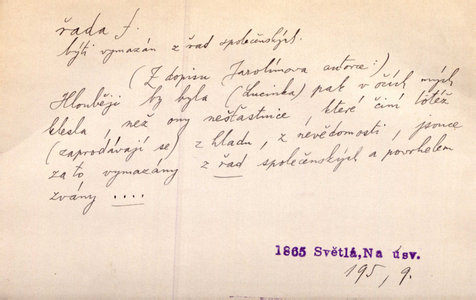 řada f.
býti vymazán z řad společenských.
(Z dopisu Jarolímova autorce:)
Hlouběji by byla (Lucinka) pak v očích mých
klesla, než ony nešťastnice, které činí totéž
(zaprodávají se) z hladu, z nevědomosti, jsouce
za to vymazány z řad společenských a povrhelem
zvány ....
1865 Světlá, Na úsv.
195, 9.